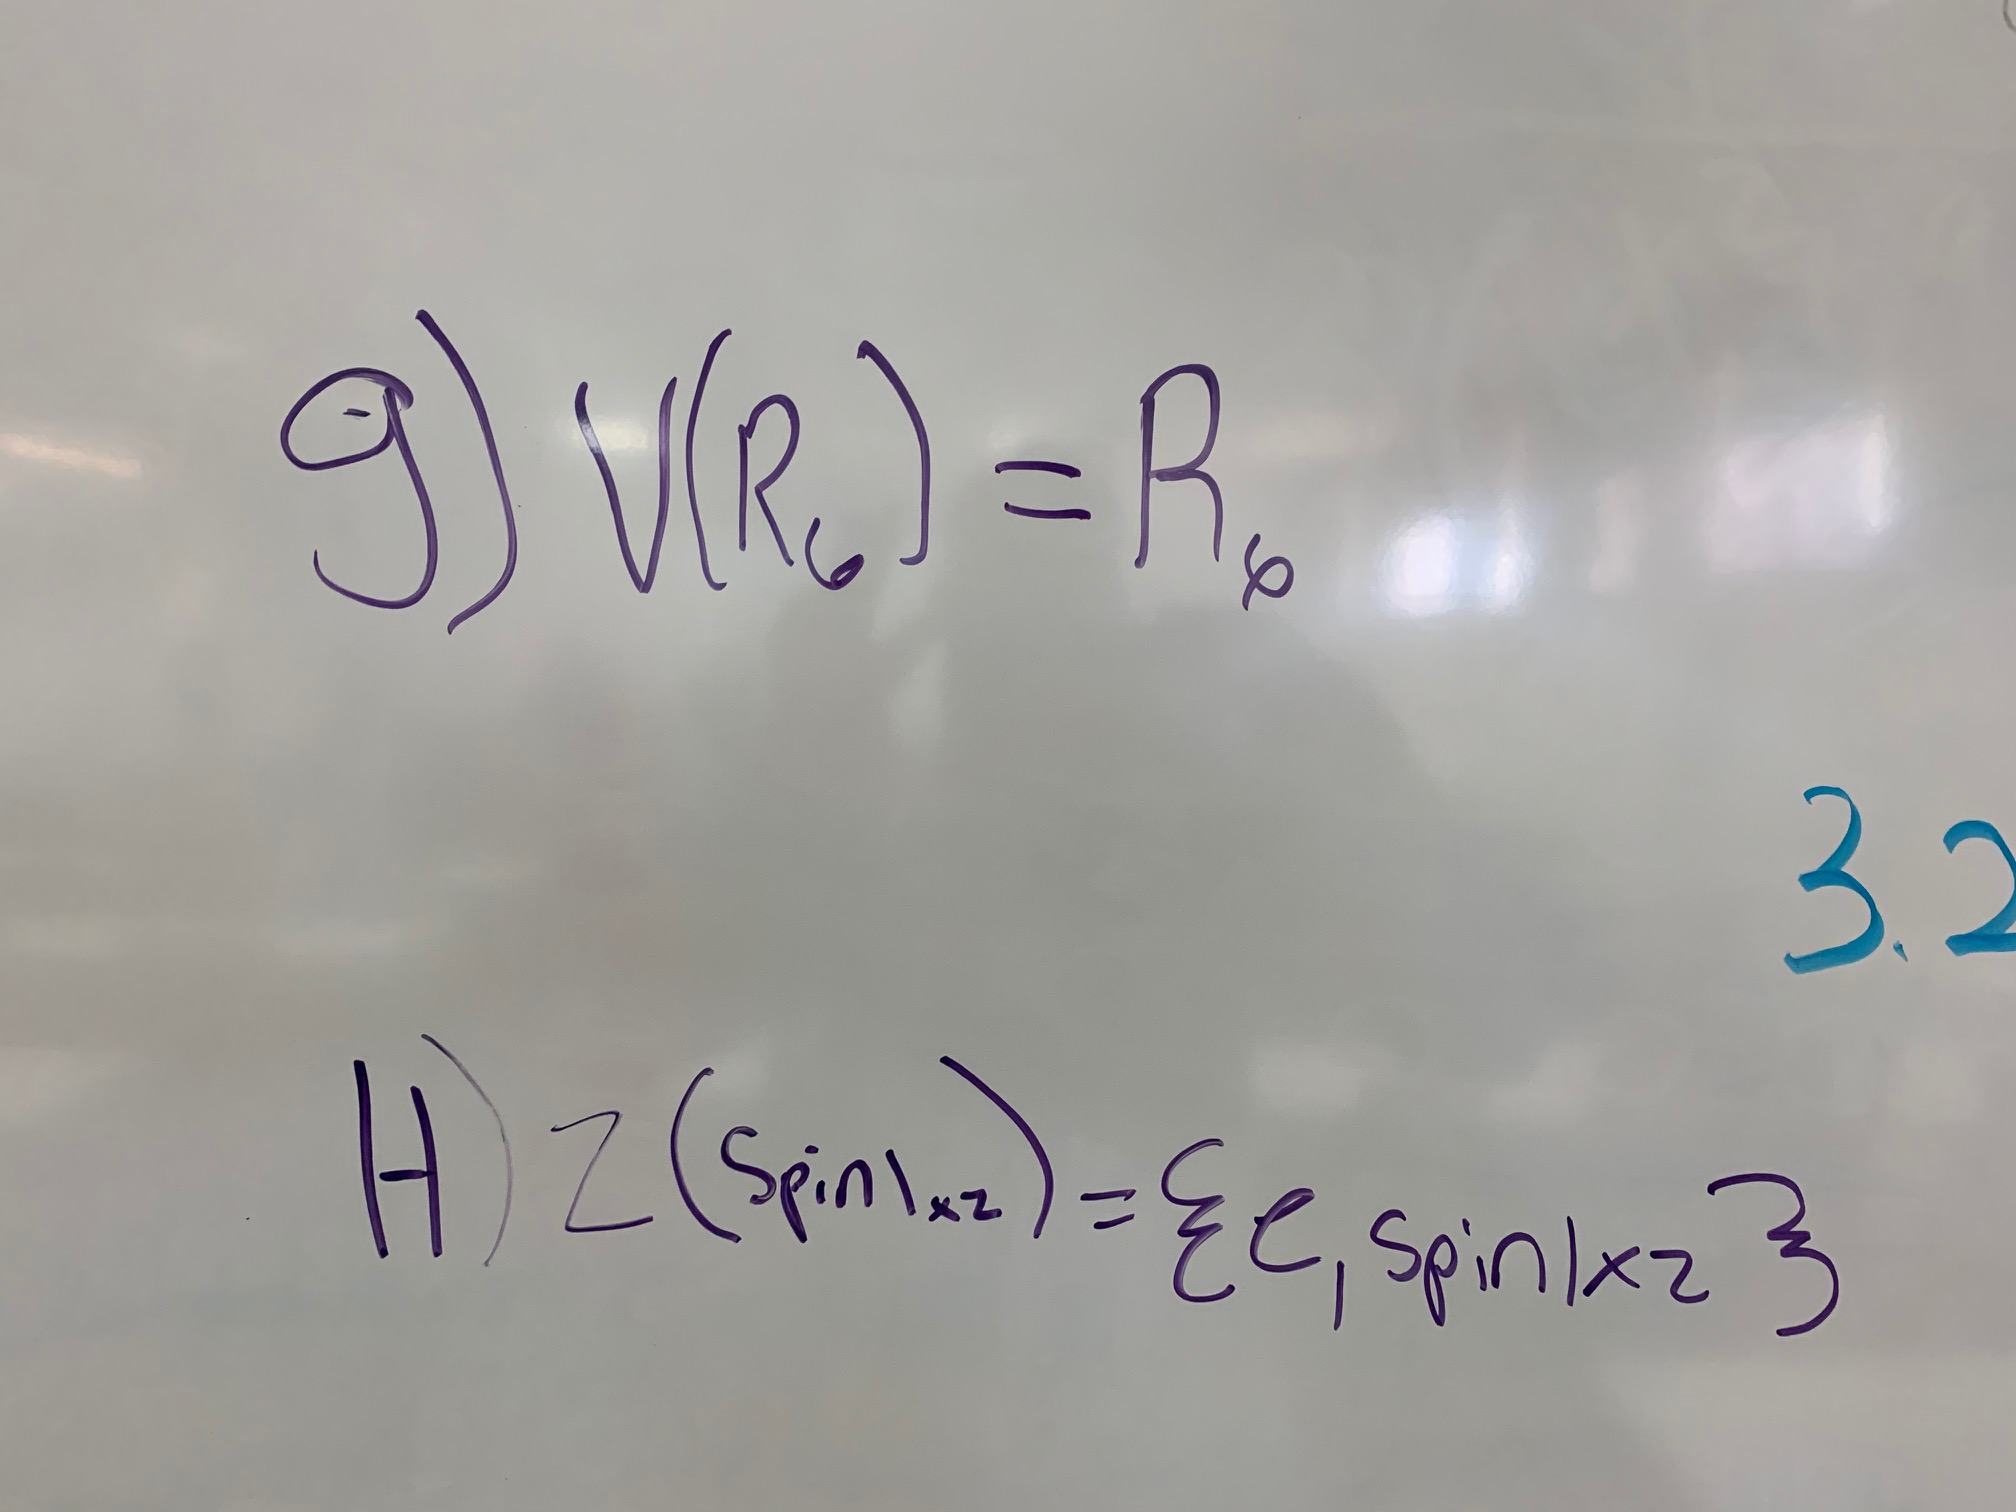 g) V(R₆) = R₆
3.2
H) Z(Spin₁ₓ₂) = {e, Spin₁ₓ₂}